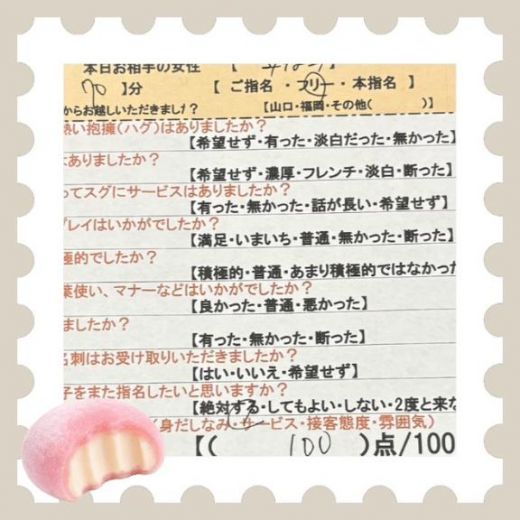 本日お相手の女性 【
70 】分 【 ご指名・フリー・本指名 】
からお越しいただきました? 【山口・福岡・その他( )】
熱い抱擁(ハグ)はありましたか?
【希望せず・有った・淡白だった・無かった】
はありましたか?
【希望せず・濃厚・フレンチ・淡白・断った】
ってスグにサービスはありましたか?
【有った・無かった・話が長い・希望せず】
プレイはいかがでしたか?
【満足・いまいち・普通・無かった・断った】
極的でしたか?
【積極的・普通・あまり積極的ではなかっ
葉使い、マナーなどはいかがでしたか?
【良かった・普通・悪かった】
ましたか?
【有った・無かった・断った】
名刺はお受け取りいただきましたか?
【はい・いいえ・希望せず】
子をまた指名したいと思いますか?
【絶対する・してもよい・しない・2度と来な
(身だしなみ・サービス・接客態度・雰囲気)
【( 100 )点/100